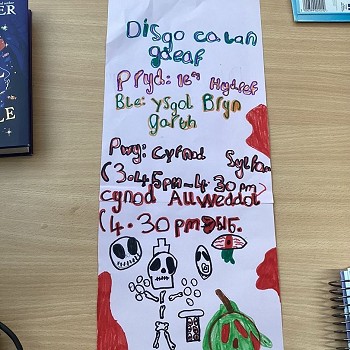 Disgo calan
gaeaf
Pryd: 16eg Hydref
Ble: ysgol Bryn
garth
Pwy: Cyfnod Sylfaen
(3.45pm-4.30pm)
cynod Allweddol
(4.30pm-